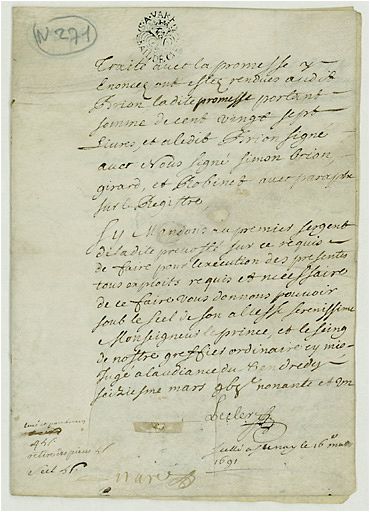 N 271
Traité avec la promesse y
Enoncez ont estez rendües audit
Brion ladite promesse portant
somme de cent vingt sept
Livres, et aledit Brion signé
avec Nous signé simon brion,
girard, et Robinet avec paraphe
sur le Registre
Sy Mandons au premier sergent
de ladite prevosté sur ce requis
de faire pour lexecution des presentes
tous exploits requis et necessaire
de ce faire vous donnons pouvoir
soub le seel de son altesse serenissime
Monseigneur le prince, et le seing
de nostre greffier ordinaire cy mis
Jugé a laudiance du Vendredy
seiziesme mars nonante et un
Leclerc
le 16e mars
1691
45s
seel 5s